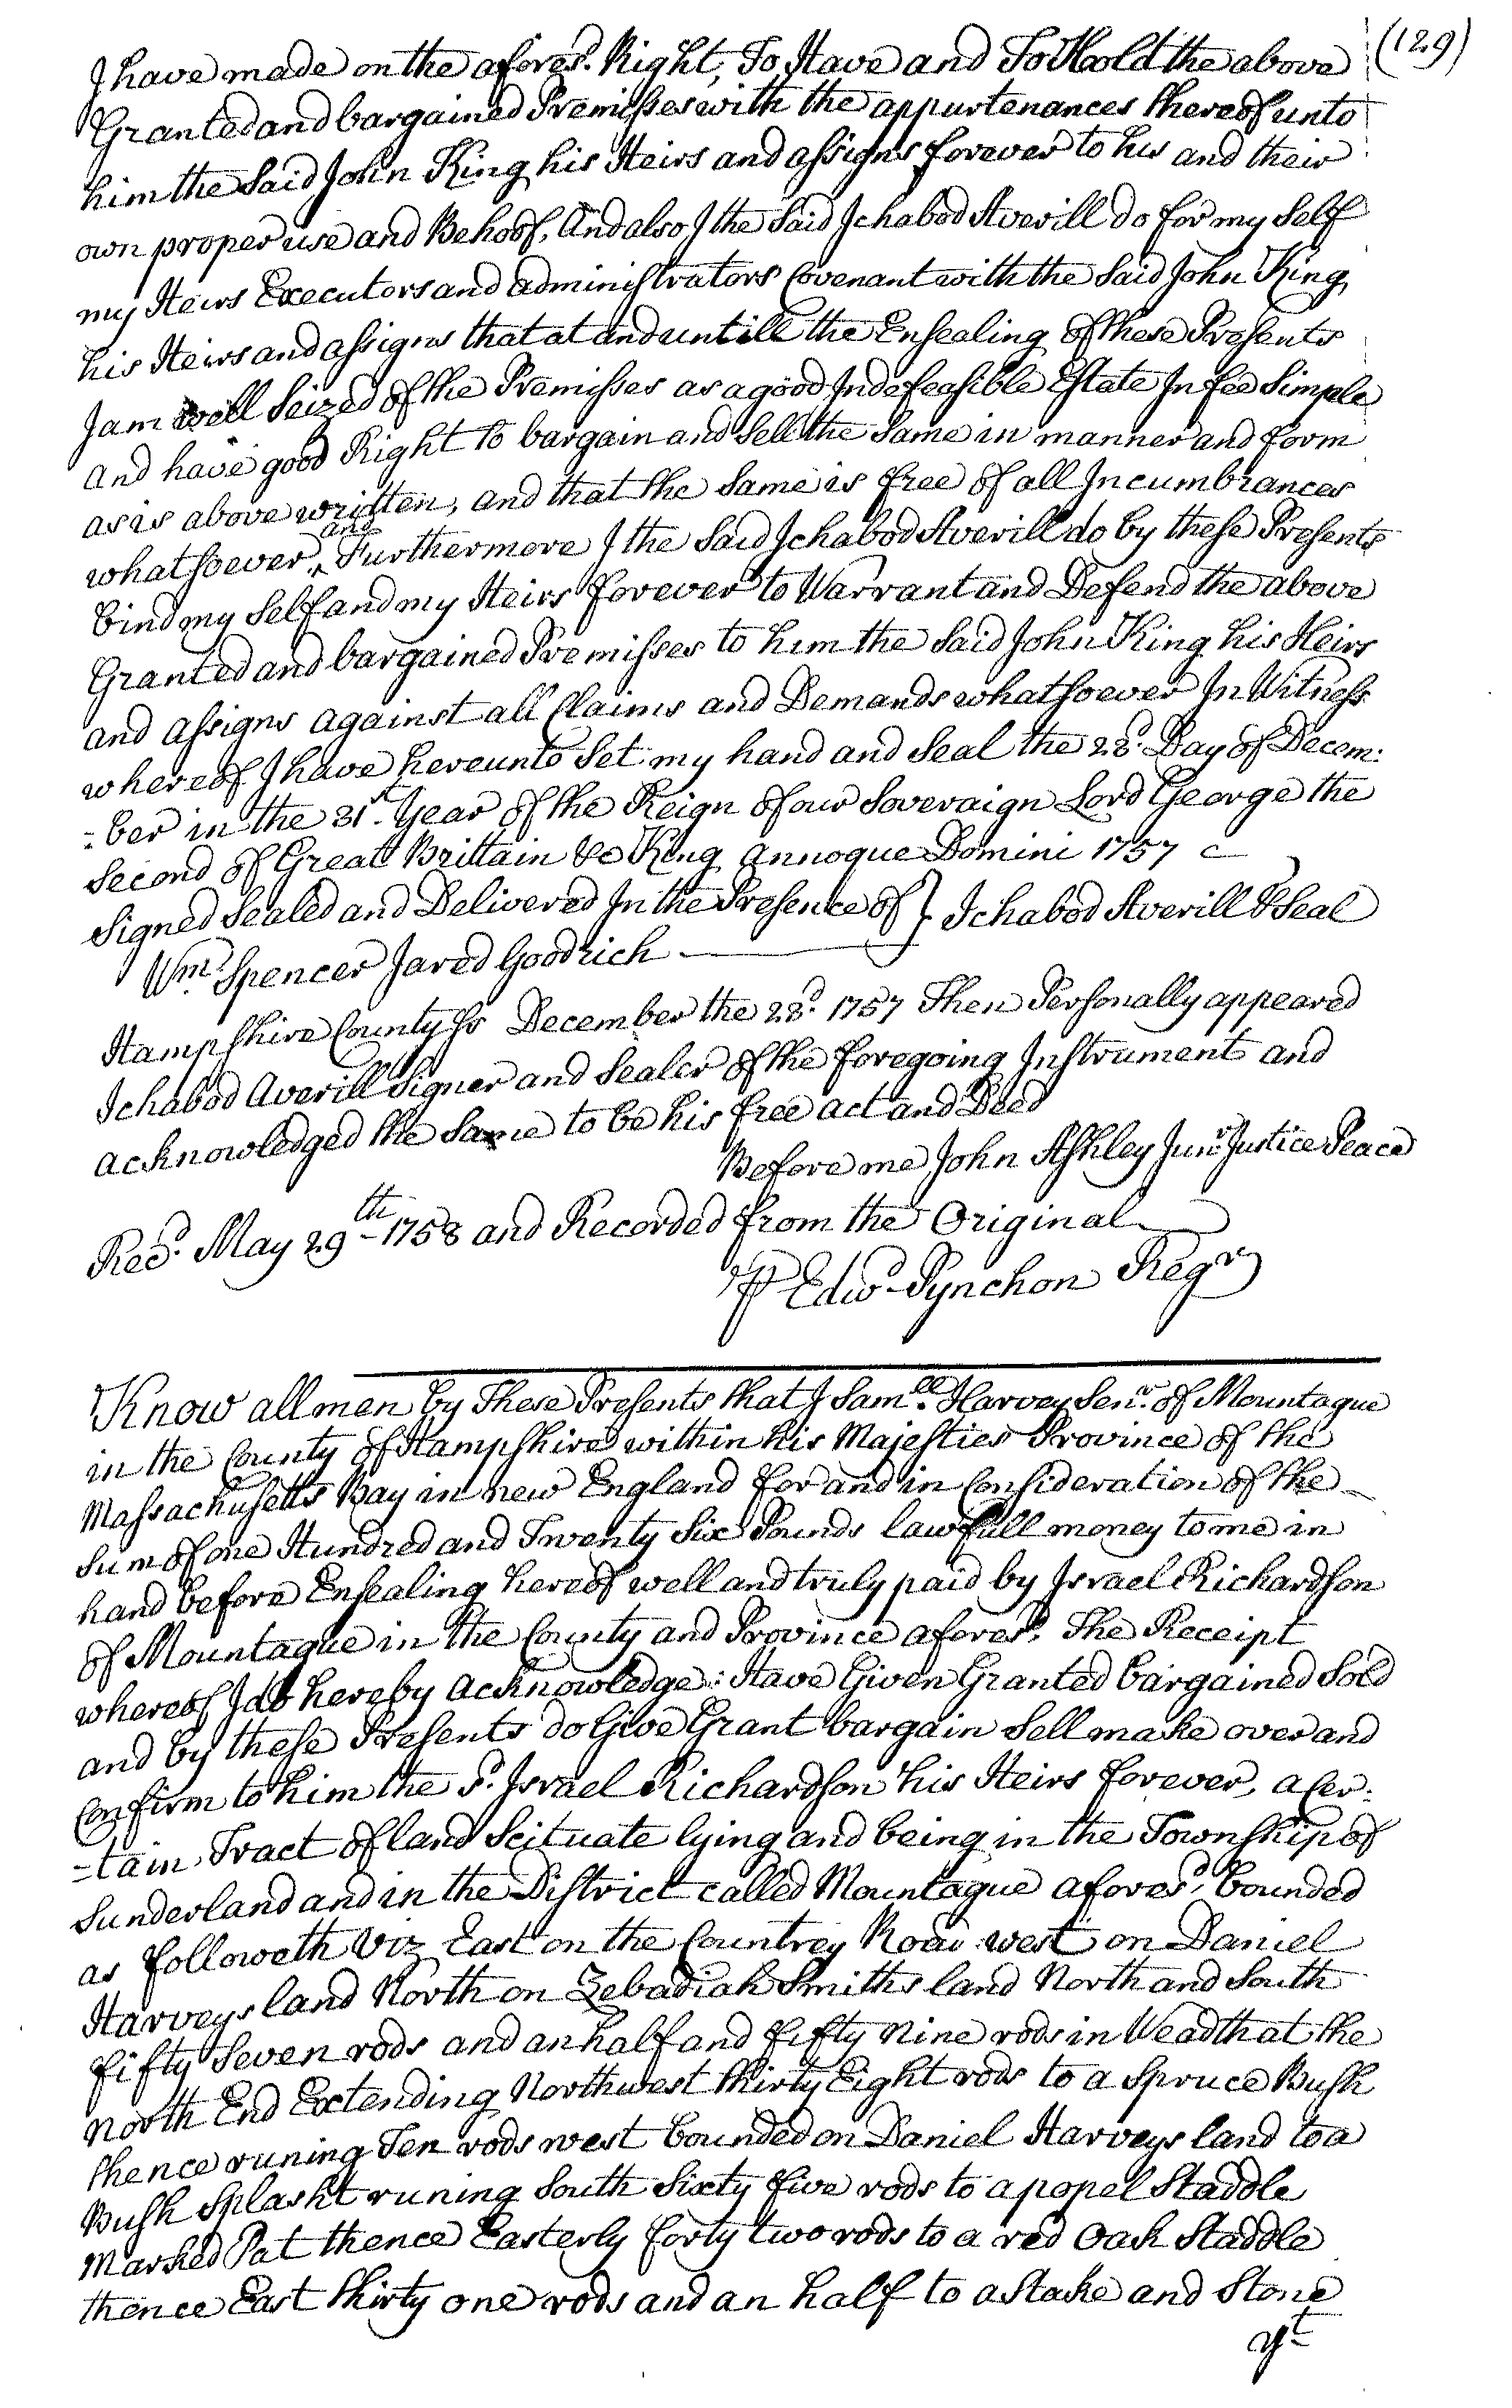 (129)
I have made on the afores.d Right, To Have and To Hold the above
Granted and bargained Premisses with the appurtenances thereof unto
him the Said John King his Heirs and assigns forever to his and their
own proper use and Behoof, And also I the Said Ichabod Averill do for my Self
my Heirs Executors and administrators Covenant with the Said John King
his Heirs and assigns that at and untill the Ensealing of these Presents
I am well Seized of the Premisses as a good Indefeasible Estate In fee Simple
and have good Right to bargain and Sell the Same in manner and form
as is above written, and that the Same is free of all Incumbrances
whatsoever ^and Furthermore I the Said Ichabod Averill do by these Presents
bind my Self and my Heirs forever to Warrant and Defend the above
Granted and bargained Premisses to him the Said John King his Heirs
and assigns against all Claims and Demands whatsoever In Witness
whereof I have hereunto Set my hand and Seal the 28.d Day of Decem:
=ber in the 31.st Year of the Reign of our Soveraign Lord George the
Second of Great Brittain &c King Annoque Domini 1757
Signed Sealed and Delivered In the Presence of } Ichabod Averill & Seal
Wm. Spencer Jared Goodrich
Hampshire County Ss December the 28.d 1757 Then Personally appeared
Ichabod Averill Signer and Sealer of the foregoing Instrument and
acknowledged the Same to be his free act and Deed
Before me John Ashley Jun.r Justice Peace
Rec.d May 29th 1758 and Recorded from the Original
P Edw.d Pynchon Reg.r
Know all men by These Presents that I Sam.ll Harvey Sen.r of Mountague
in the County of Hampshire within his Majesties Province of the
Massachusetts Bay in new England for and in Consideration of the
Sum of one Hundred and Twenty Six Pounds lawfull money to me in
hand before Ensealing hereof well and truly paid by Israel Richardson
of Mountague in the County and Province afores.d The Receipt
whereof I do hereby acknowledge: Have Given Granted bargained Sold
and by these Presents do Give Grant bargain Sell make over and
Confirm to him the s.d Israel Richardson his Heirs forever, a Cer:
=tain Tract of land Scituate lying and being in the Township of
Sunderland and in the District called Mountague afores.d bounded
as followeth Viz East on the Countrey Road west on Daniel
Harveys land North on Zebadiah Smiths land North and South
fifty Seven rods and an half and fifty nine rods in Weadth at the
North End Extending Northwest thirty Eight rods to a Spruce Bush
thence runing Ten rods west bounded on Daniel Harveys land to a
Bush Splasht runing South Sixty five rods to a popel Staddle
Marked Pat thence Easterly forty two rods to a red Oak Staddle
thence East thirty one rods and an half to a Stake and Stone
yt